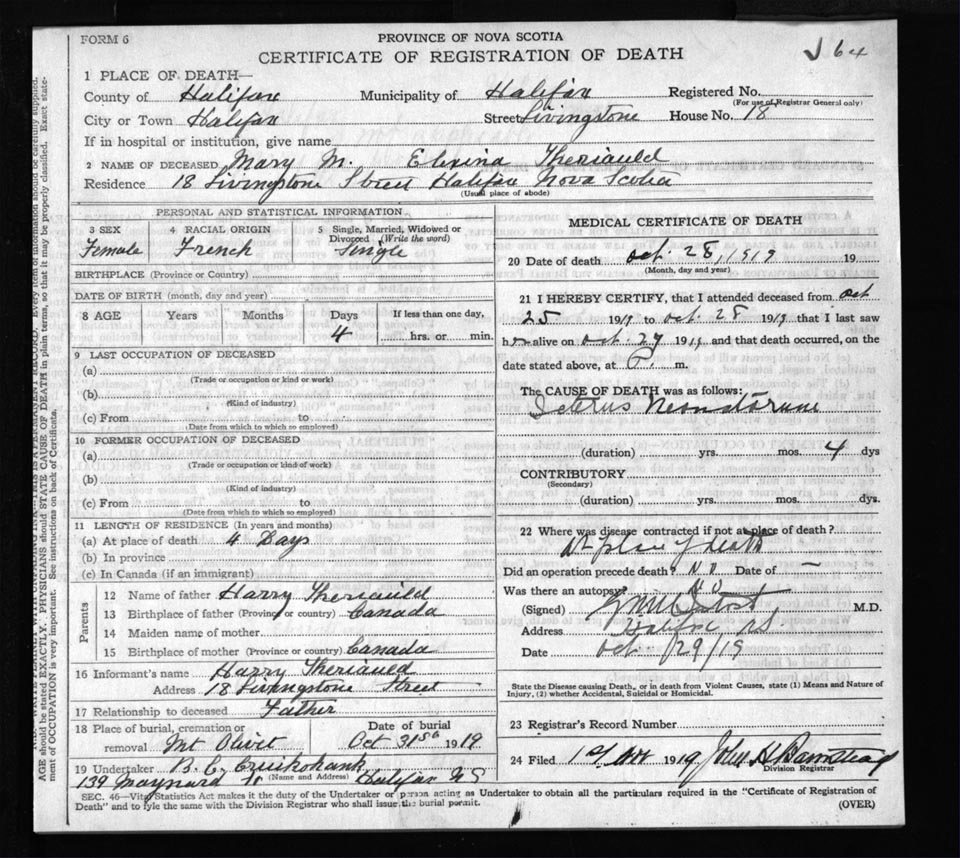 FORM 6
PROVINCE OF NOVA SCOTIA
CERTIFICATE OF REGISTRATION OF DEATH
64
1 PLACE OF DEATH—
County of Halifax Municipality of Halifax Registered No.
(For use of Registrar General only)
City or Town Halifax Street Livingstone House No. 18
If in hospital or institution, give name
2 NAME OF DECEASED Mary M. Elexina Theriauld
Residence 18 Livingstone Street Halifax Nova Scotia
(Usual place of abode)
PERSONAL AND STATISTICAL INFORMATION
3 SEX 4 RACIAL ORIGIN 5 Single, Married, Widowed or Divorced (Write the word)
Female French Single
BIRTHPLACE (Province or Country)
DATE OF BIRTH (month, day and year)
8 AGE Years Months Days If less than one day,
4 hrs. or min.
9 LAST OCCUPATION OF DECEASED
(a)
(Trade or occupation or kind or work)
(b)
(Kind of industry)
(c) From to
(Date from which to which so employed)
10 FORMER OCCUPATION OF DECEASED
(a)
(Trade or occupation or kind or work)
(b)
(Kind of industry)
(c) From to
(Date from which to which so employed)
11 LENGTH OF RESIDENCE (In years and months)
(a) At place of death 4 Days
(b) In province
(c) In Canada (if an immigrant)
Parents
12 Name of father Harry Theriauld
13 Birthplace of father (Province or country) Canada
14 Maiden name of mother
15 Birthplace of mother (Province or country) Canada
16 Informant's name Harry Theriauld
Address 18 Livingstone Street
17 Relationship to deceased Father
18 Place of burial, cremation or removal Mt Olivet
Date of burial
Oct 31st 1919
19 Undertaker B. C. Cruikshank
139 Maynard St (Name and Address) Halifax N S
MEDICAL CERTIFICATE OF DEATH
20 Date of death Oct. 28, 1919 19
(Month, day and year)
21 I HEREBY CERTIFY, that I attended deceased from Oct
25 1919 to Oct. 28 1919 that I last saw
her alive on Oct. 27 1919 and that death occurred, on the
date stated above, at P. m.
The CAUSE OF DEATH was as follows:
Icterus Neonatorum
(duration) yrs. mos. 4 dys
CONTRIBUTORY
(Secondary)
(duration) yrs. mos. dys.
22 Where was disease contracted if not at place of death?
At place of death
Did an operation precede death? No Date of —
Was there an autopsy? No
(Signed) M.D.
Address Halifax NS
Date Oct. 29/19
State the Disease causing Death, or in death from Violent Causes, state (1) Means and Nature of
Injury, (2) whether Accidental, Suicidal or Homicidal.
23 Registrar's Record Number
24 Filed 1st Nov 1919 John H Barnstead
Division Registrar
SEC. 46—Vital Statistics Act makes it the duty of the Undertaker or person acting as Undertaker to obtain all the particulars required in the "Certificate of Registration of
Death" and to fyle the same with the Division Registrar who shall issue the burial permit.
(OVER)
AGE should be stated EXACTLY. PHYSICIANS should STATE CAUSE OF DEATH in plain terms, so that it may be properly classified. Exact statement of OCCUPATION is very important. See instructions on back of Certificate.